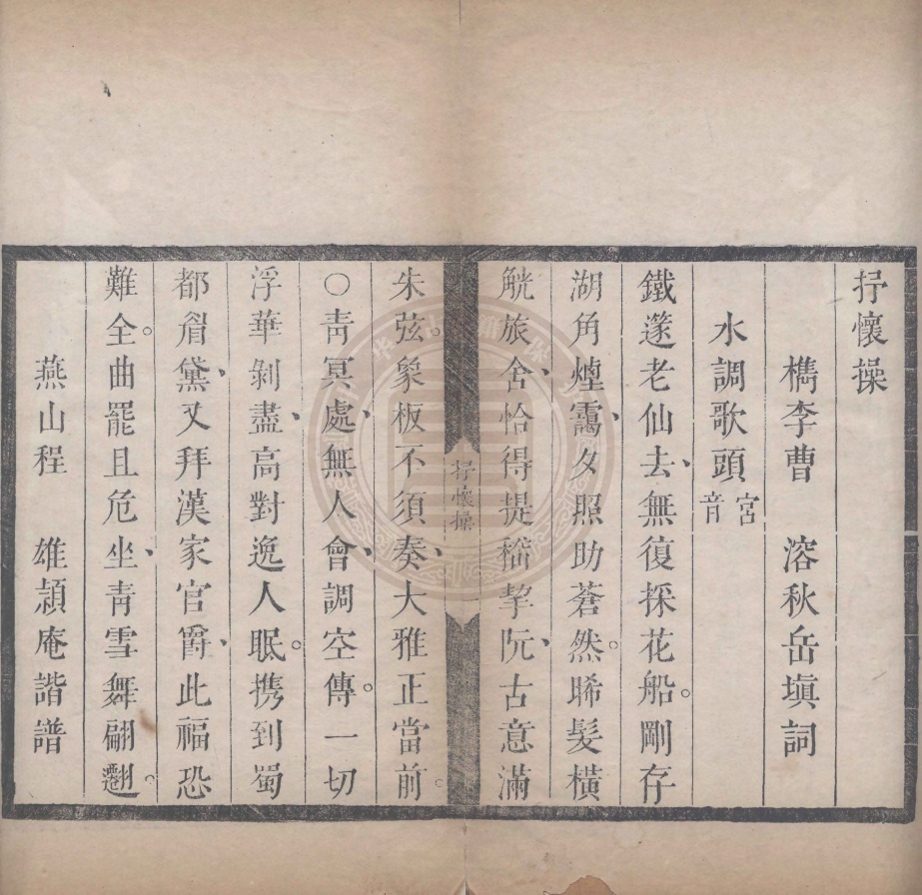 抒懷操
檇李曹　溶秋岳塡詞
水調歌頭宮音
鐵篴老仙去、無復採花船。剛存
湖角煙靄、夕照助蒼然。晞髮橫
觥旅舍、恰得提嵇挈阮、古意滿
朱弦。象板不須奏、大雅正當前。
○靑冥處、無人會、調空傳。一切
浮華剝盡、高對逸人眠。攜到蜀
都眉黛、又拜漢家官爵、此福恐
難全。曲罷且危坐、靑雪舞翩翾。
燕山程　雄潁庵諧譜
抒懷操